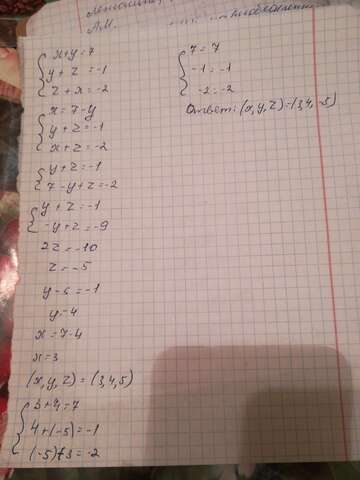 x+y=7
y+z=-1
z+x=-2
x=7-y
y+z=-1
x+z=-2
y+z=-1
7-y+z=-2
y+z=-1
-y+z=-9
2z=-10
z=-5
y-5=-1
y=4
x=7-4
x=3
(x,y,z)=(3,4,5)
3+4=7
4+(-5)=-1
(-5)+3=-2
7=7
-1=-1
-2=-2
Ответ: (x,y,z)=(3,4,-5)